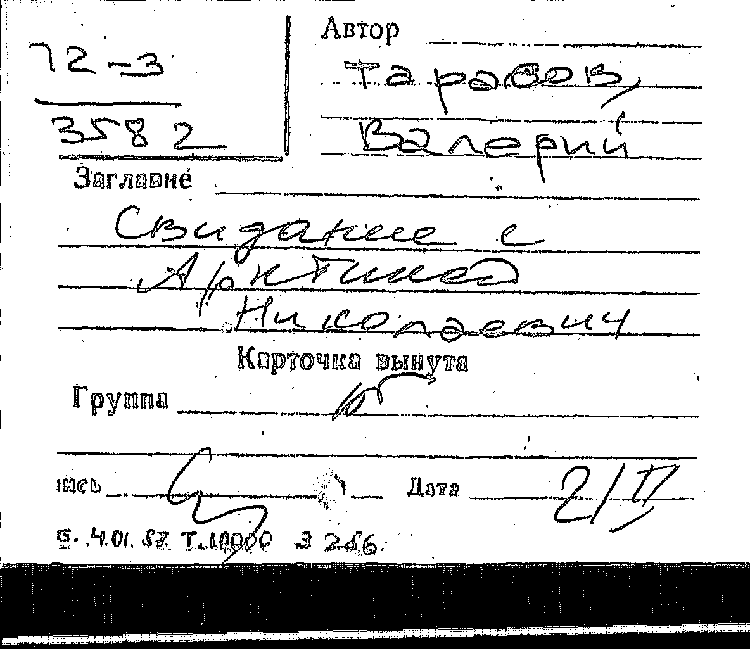 72-3
3582
Автор
Тарасов,
Валерий
Заглавие
Свидание с
Арктикой
Николаевич
Карточка вынута
Группа
ись
Дата 2/IV
4.01.82 Т.10000 З 286.